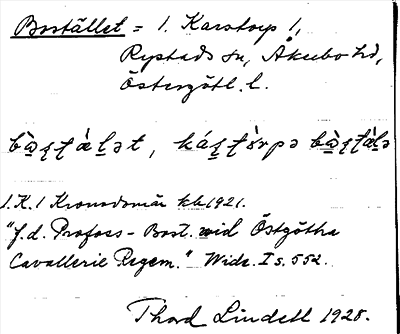 Bostället = 1. Karstorp 1,
Rystads sn, Åkerbo hd,
Östergötl. l.
1. K. 1 Kronodomän kb 1921.
"f.d. Profoss-Bost. vid Östgötha
Cavallerie Regem." Wide. I s. 552.
Thord Lindell 1928.